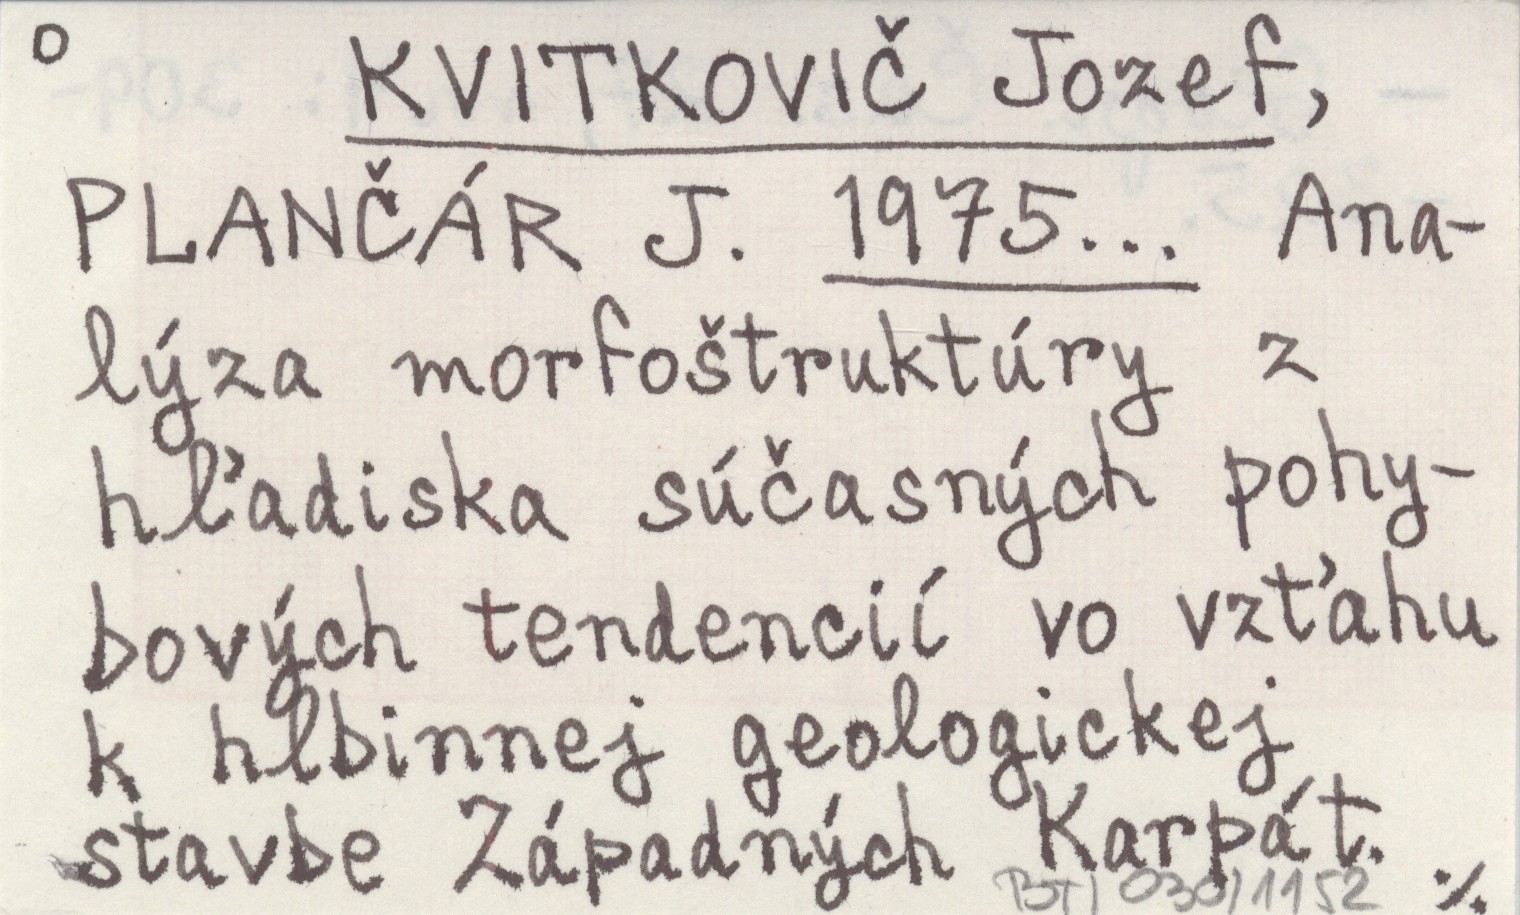 o KVITKOVIČ Jozef,
PLANČÁR J. 1975... Ana-
lýza morfoštruktúry z
hľadiska súčasných pohy-
bových tendencií vo vzťahu
k hlbinnej geologickej
stavbe Západných Karpát.
BJ1 030/1152 ./.